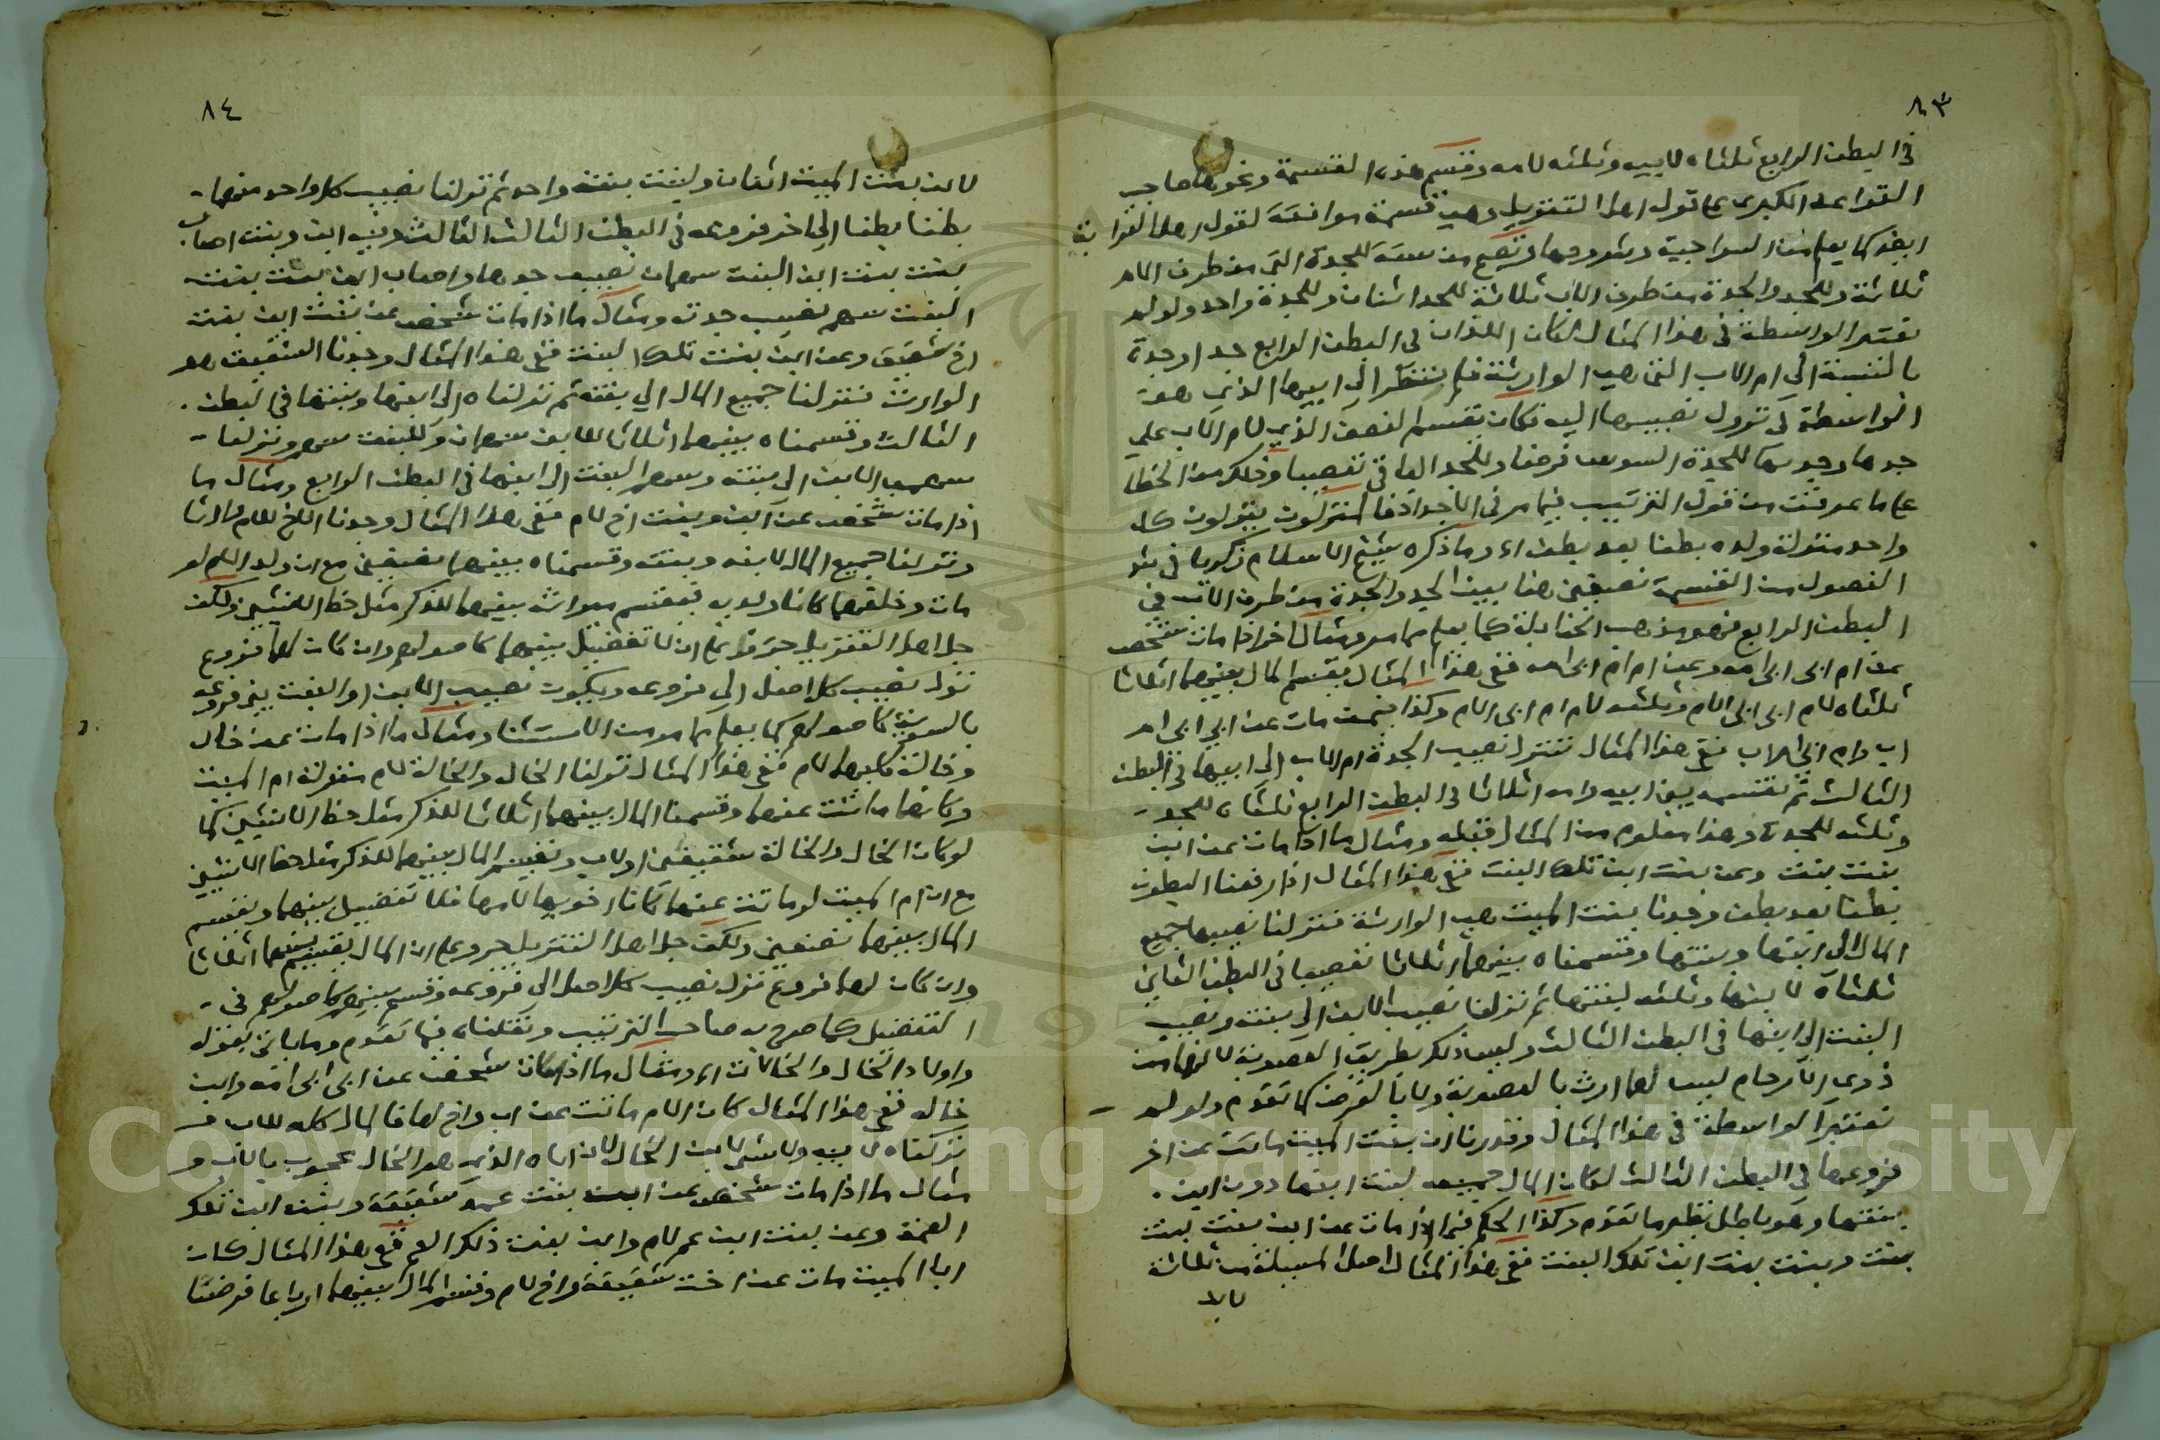 ٨٣
في البطن الرابع ثلثاه لابيه وثلثه لامه وقسم هذه القسمة ونحوها صاحب
القواعد الكبرى على قول اهل التنزيل وهي قسمة موافقة لقول اهل القرابة
ايضا كما يعلم من السراجية وشروحها وتصح من ستة للجدة التي من طرف الام
ثلاثة وللجد والجدة من طرف الاب ثلاثة للجد اثنان وللجدة واحد ولو لم
تعتبر الواسطة في هذا المثال لكان اللذان في البطن الرابع جدا وجدة
بالنسبة الى ام الاب التي هي الوارثة فلم ينتظر الى ابيها الذي هو
الواسطة في نزول نصيبها اليه فكان تقسيم النصف الذي لام الاب على
جدها وجدتها للجدة السدس فرضا وللجد الباقي تعصيبا وذلك من الخطا
على ما عرفت من قول الترتيب فيما مر في الاجداد فالمنزلون ينزلون كل
واحد منزلة ولده بطنا بعد بطن اه وما ذكره شيخ الاسلام زكريا في شرح
الفصول من القسمة نصفين هنا بين الجد والجدة من طرف الاب في
البطن الرابع فهو مذهب الحنابلة كما يعلم مما مر ومثال اخر اذا مات شخص
عن ام ابي ابي امه وعن ام ام ابي امه ففي هذا المثال يقسم المال بينهما اثلاثا
ثلثاه لام ابي ابي الام وثلثه لام ام ابي الام وكذا فيمن مات عن ابي ابي ام
اب وام ابي ام لاب ففي هذا المثال ننزل نصيب الجدة ام الاب الى ابيها في البطن
الثالث ثم نقسمه بين ابيه وامه اثلاثا في البطن الرابع ثلثاه للجد
وثلثه للجدة وهذا معلوم من المثال قبله ومثال ما اذا مات عن ابن
بنت بنت وعن بنت ابن تلك البنت ففي هذا المثال اذا رفعنا البطون
بطنا بعد بطن وجدنا بنت الميت هي الوارثة فننزلنا نصيبها جميع
المال الى ابنها وبنتها وقسمناه بينهما اثلاثا تعصيبا في البطن الثاني
ثلثاه لابنها وثلثه لبنتها ثم نزلنا نصيب الابن الى بنته ونصيب
البنت الى ابنها في البطن الثالث وليس ذلك بطريق العصوبة لانهما من
ذوي الارحام ليس لهما ارث بالعصوبة ولا بالفرض كما تقدم ولو لم
نعتبر الواسطة في هذا المثال وقدرنا ان بنت الميت ماتت عن اخر
فروعها في البطن الثالث لكان المال جميعه لبنت ابنها دون ابن
بنتها وهو باطل نظير ما تقدم وكذا الحكم فيما اذا مات عن ابن بنت بنت
بنت وبنت بنت ابن تلك البنت ففي هذا المثال اصل المسيلة من ثلاثة
لابن
٨٤
لابن بنت الميت اثنان ولبنت بنته واحد ثم نزلنا نصيب كل واحد منهما
بطنا بطنا الى اخر فروعه في البطن الثالث الثالث وفيه ابن وبنت اصاب
بنت بنت ابن البنت سهمان نصيب جدها واصاب ابن بنت بنت
البنت سهم نصيب جدته ومثال ما اذا مات شخص عن بنت ابن بنت
اخ شقيق وعن ابن بنت تلك البنت ففي هذا المثال وجدنا الشقيق هو
الوارث فنزلنا جميع المال الى بنته ثم نزلناه الى ابنها وبنتها في البطن
الثالث وقسمناه بينهما اثلاثا للابن سهمان وللبنت سهم ونزلنا
سهمي الابن الى بنته وسهم البنت الى ابنها في البطن الرابع ومثال ما
اذا مات شخص عن ابن وبنت اخ لام ففي هذا المثال وجدنا الاخ للام وارثا
ونزلنا جميع المال لابنه وبنته وقسمناه بينهما نصفين مع ان ولد الام لو
مات وخلفهما كانا ولديه فيقسم ميراثه بينهما للذكر مثل حظ الانثيين ولكن
جل اهل التنزيل جروا على ان لا تفضيل بينهما كاصولهم وان كان لهما فروع
نزل نصيب كل اصل الى فروعه ويكون نصيب الابن او البنت بين فروعه
بالسوية كاصولهم كما يعلم مما مر من الاستثنا ومثال ما اذا مات عن خال
وخالة كلاهما لام ففي هذا المثال نزلنا الخال والخالة لام منزلة ام الميت
وكانها ماتت عنهما وقسمنا المال بينهما اثلاثا للذكر مثل حظ الانثيين كما
لو كان الخال والخالة شقيقين او لاب ونقسم المال بينهما للذكر مثل حظ الانثيين
مع ان ام الميت لو ماتت عنهما كانا اخويها لامها فلا تفضيل بينهما ويقسم
المال بينهما نصفين ولكن جل اهل التنزيل جروا على ان المال يقسم بينهما اثلاثا
وان كان لهما فروع نزل نصيب كل اصل الى فروعه وقسم بينهم كاصولهم في
التفضيل كما صرح به صاحب الترتيب ونقلناه فيما تقدم وما ياتي بقوله
واولاد الخال والخالات اه ومثال ما اذا مات شخص عن ابي ابي امه وابن
خاله ففي هذا المثال كان الام ماتت عن اب واخ لها فالمال كله للاب و
نزلناه لابيه ولا شي لابن الخال لان اباه الذي هو الخال محجوب بالاب و
مثال ما اذا مات شخص عن ابن بنت عمة شقيقة وبنت ابن تلك
العمة وعن بنت ابن عم لام وابن بنت ذلك العم ففي هذا المثال كان
ابا الميت مات عن اخت شقيقة واخ لام وقسم المال بينهما ارباعا فرضا